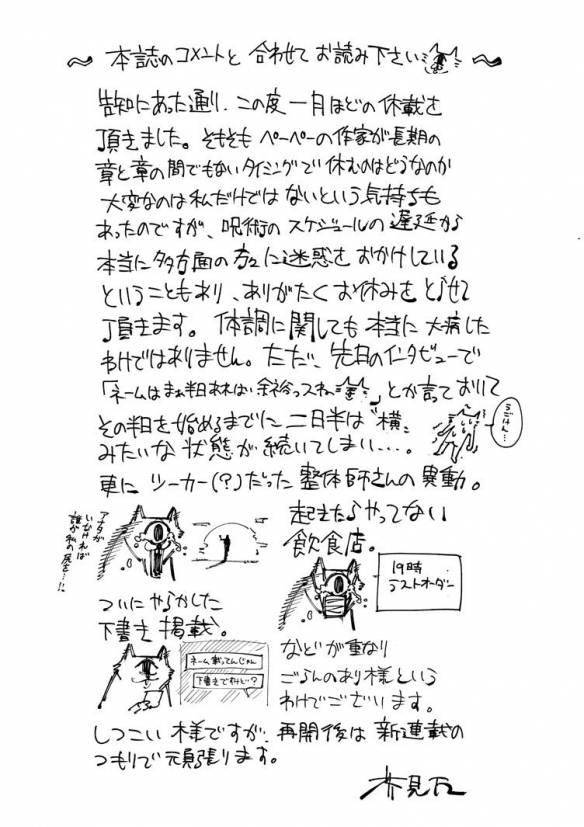 〜 本誌のコメントと 合わせて お読み下さい 〜
告知にあった通り、この度 一月ほどの 休載を
頂きました。そもそも ペーペーの作家が長期の
章と章の間でもないタイミングで休むのはどうなのか
大変なのは私だけでは ないという気持ちも
あったのですが、呪術の スケジュールの 遅延から
本当に多方面の方々に迷惑を おかけしている
ということもあり、ありがたく お休みを とらせて
頂きます。体調に関しても 本当に 大病した
わけではありません。ただ、先日のインタビューで
「ネームはまぁ半日あれば余裕っスね」とか言て おいて
その半日を始めるまでに 二日半は〝横〟
みたいな 状態が続いてしまい…。
うごけん…
更に ツーカー(?)だった 整体師さんの 異動。
アナタが
いなければ
誰が私の尻を…!?
起きたらやってない
飲食店。
19時
ラストオーダー
ついにやらかした
下書き 掲載。
ネーム載ってんじゃん
下書きですけど?
などが重なり
ごらんのあり様という
わけでございます。
しつこい 様ですが、再開後は 新連載の
つもりで 頑張ります。
芥見下々